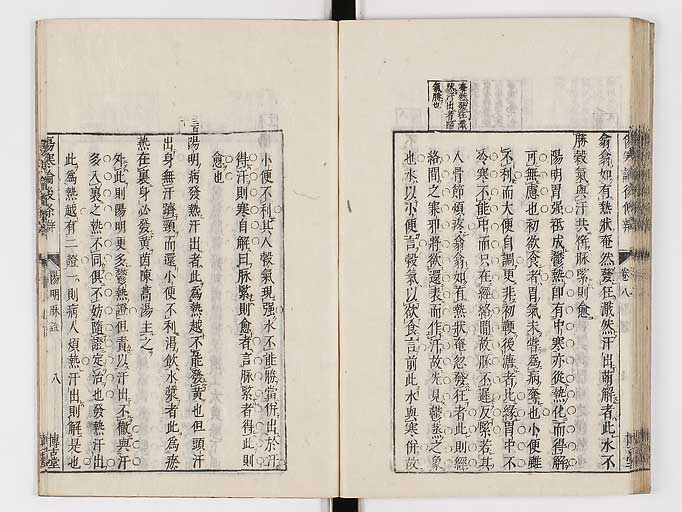 奄然發狂濈
然汗出者陰
氣勝也
翕翕如有熱狀奄然發狂濈然汗出而解者此水不
勝穀氣與汗共併脉緊則愈
陽明胃強祗成鬱熱即有中寒亦從熱化而得解
可無慮也初欲食者胃氣未嘗為病奪也小便雖
不利而大便自調更非初鞕後溏者比緣胃中不
冷寒不能中而只在經絡間故脉不遲反緊若其
人骨節煩疼翕翕如有熱狀奄忽發狂者此則經
絡間之寒邪將欲還表而作汗故先見鬱蒸之象
也水以小便言穀氣以欲食言前此水與寒併故
卷八
小便不利其人穀氣現強水不能勝當併出於汗
得汗則寒自解曰脉緊則愈者言脉緊者得此則
愈也
陽明病發熱汗出者此為熱越不能發黃也但頭汗
出身無汗劑頸而還小便不利渴飲水漿者此為瘀
熱在裏身必發黃茵蔯蒿湯主之
外此則陽明更多鬱熱證但責以汗出不徹與汗
多入裏之熱不同俱不妨隨證定治也發熱汗出
此為熱越有二證一則病人煩熱汗出則解是也
傷寒論後條辨
陽明脉證
八
博古堂